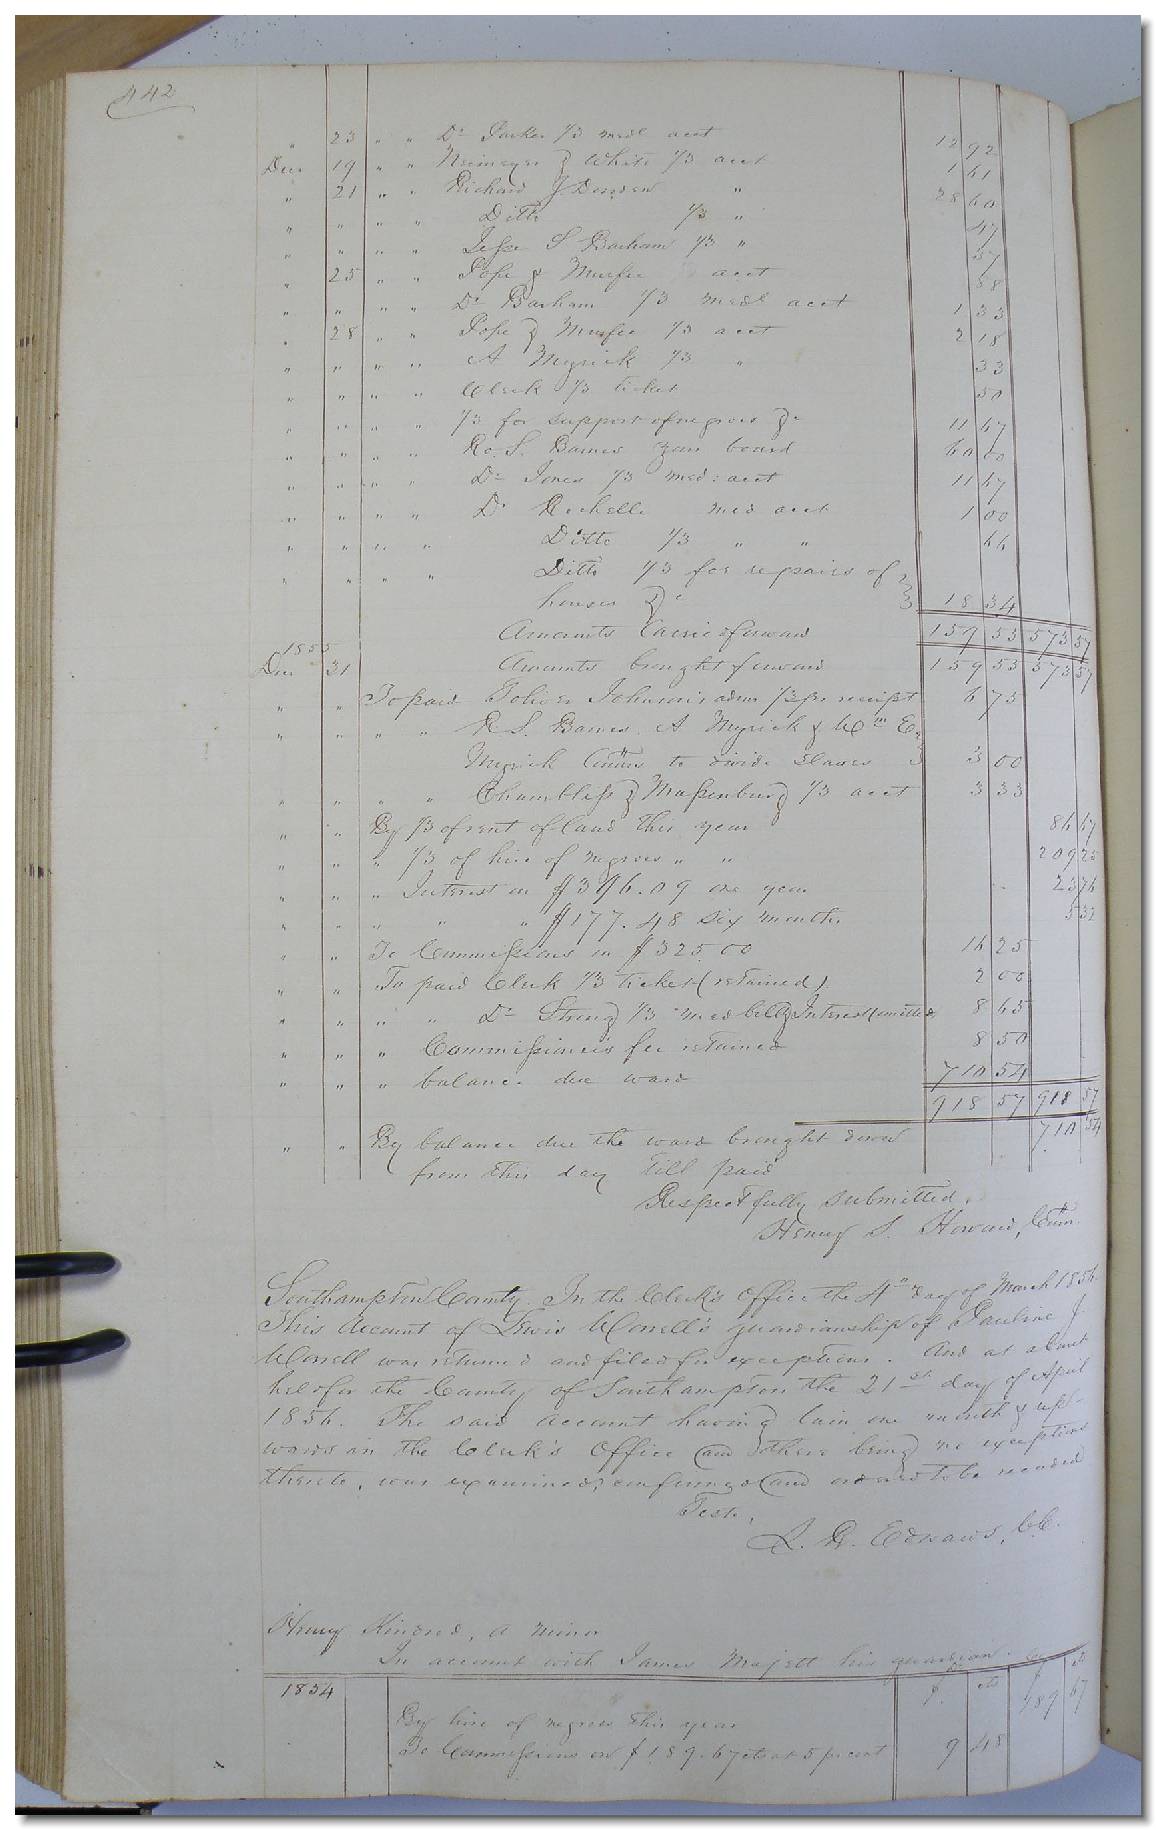 442
" 23 " " Dr Parker 1/3 medl acct 12 92
Dec 19 " " Neimeyer & White 1/3 acct 1 61
" 21 " " Richard J. Darden " 28 60
" " " " Ditto 1/3 " 47
" " " " Jesse S Barham 1/3 " 57
" 25 " " Pope & Murfee acct 88
" " " " Dr Barham 1/3 medl acct 1 33
" 28 " " Pope & Murfee 1/3 acct 2 18
" " " " A Myrick 1/3 " 33
" " " " Clerk 1/3 ticket 50
" " " " 1/3 for support of negroes &c 11 67
" " " " Ro. S. Barnes year board 60 00
" " " " Dr Jones 1/3 med: acct 11 67
" " " " Dr Rochelle med acct 1 00
" " " " Ditto 1/3 " " 66
" " " " Ditto 1/3 for repairs of
houses &c 18 34
Amounts Carried forward 159 53 573 57
1855
Dec 31 Amounts brought forward 159 53 573 57
" " To paid Toliver Johnson's admr 1/3 pr. receipt 6 75
" " " " R S. Barnes. A. Myrick & Wm E.
Myrick Comrs to divide slaves 3 00
" " " " Chambless & Massenburg 1/3 acct 3 33
" " By 1/3 of rent of land this year 86 67
" " " 1/3 of hire of negroes " " 209 25
" " " Interest on $396.09 one year 23 76
" " " " " $177.48 six months 5 32
" " To Commissions on $325.00 16 25
" " To paid Clerk 1/3 ticket (retained) 2 00
" " " " Dr String 1/3 med bill & Interest (omitted) 8 65
" " " Commissioner's fee retained 8 50
" " " balance due ward 710 54
918 57 918 57
" " By balance due the ward brought down 710 54
from this day till paid
Respectfully submitted.
Henry S. Howard, Comr.
Southampton County. In the Clerk's Office the 4th day of March 1856.
This Account of Lewis Worrell's guardianship of Pauline J.
Worrell was returned and filed for exceptions. And at a Court
held for the County of Southampton the 21st day of April
1856. The said account having lain one month & up-
wards in the Clerk's Office and there being no exceptions
thereto, was examined, confirmed and ordered to be recorded
Teste,
L. R. Edwards, C.C.
Henry Kindred, a minor
In account with James Majett his guardian. Dr Cr
1854 $. cts $ cts
By hire of negroes this year 189 67
To Commissions on $189.67 cts at 5 per cent 9 48